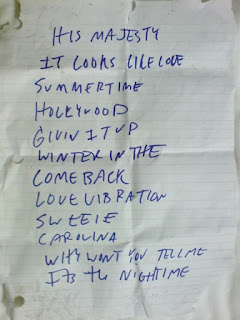 HIS MAJESTY
IT LOOKS LIKE LOVE
SUMMERTIME
HOLLYWOOD
GIVIN IT UP
WINTER IN THE
COMEBACK
LOVE VIBRATION
SWEETIE
CAROLINA
WHY WONT YOU TELL ME
ITS the NIGHTIME